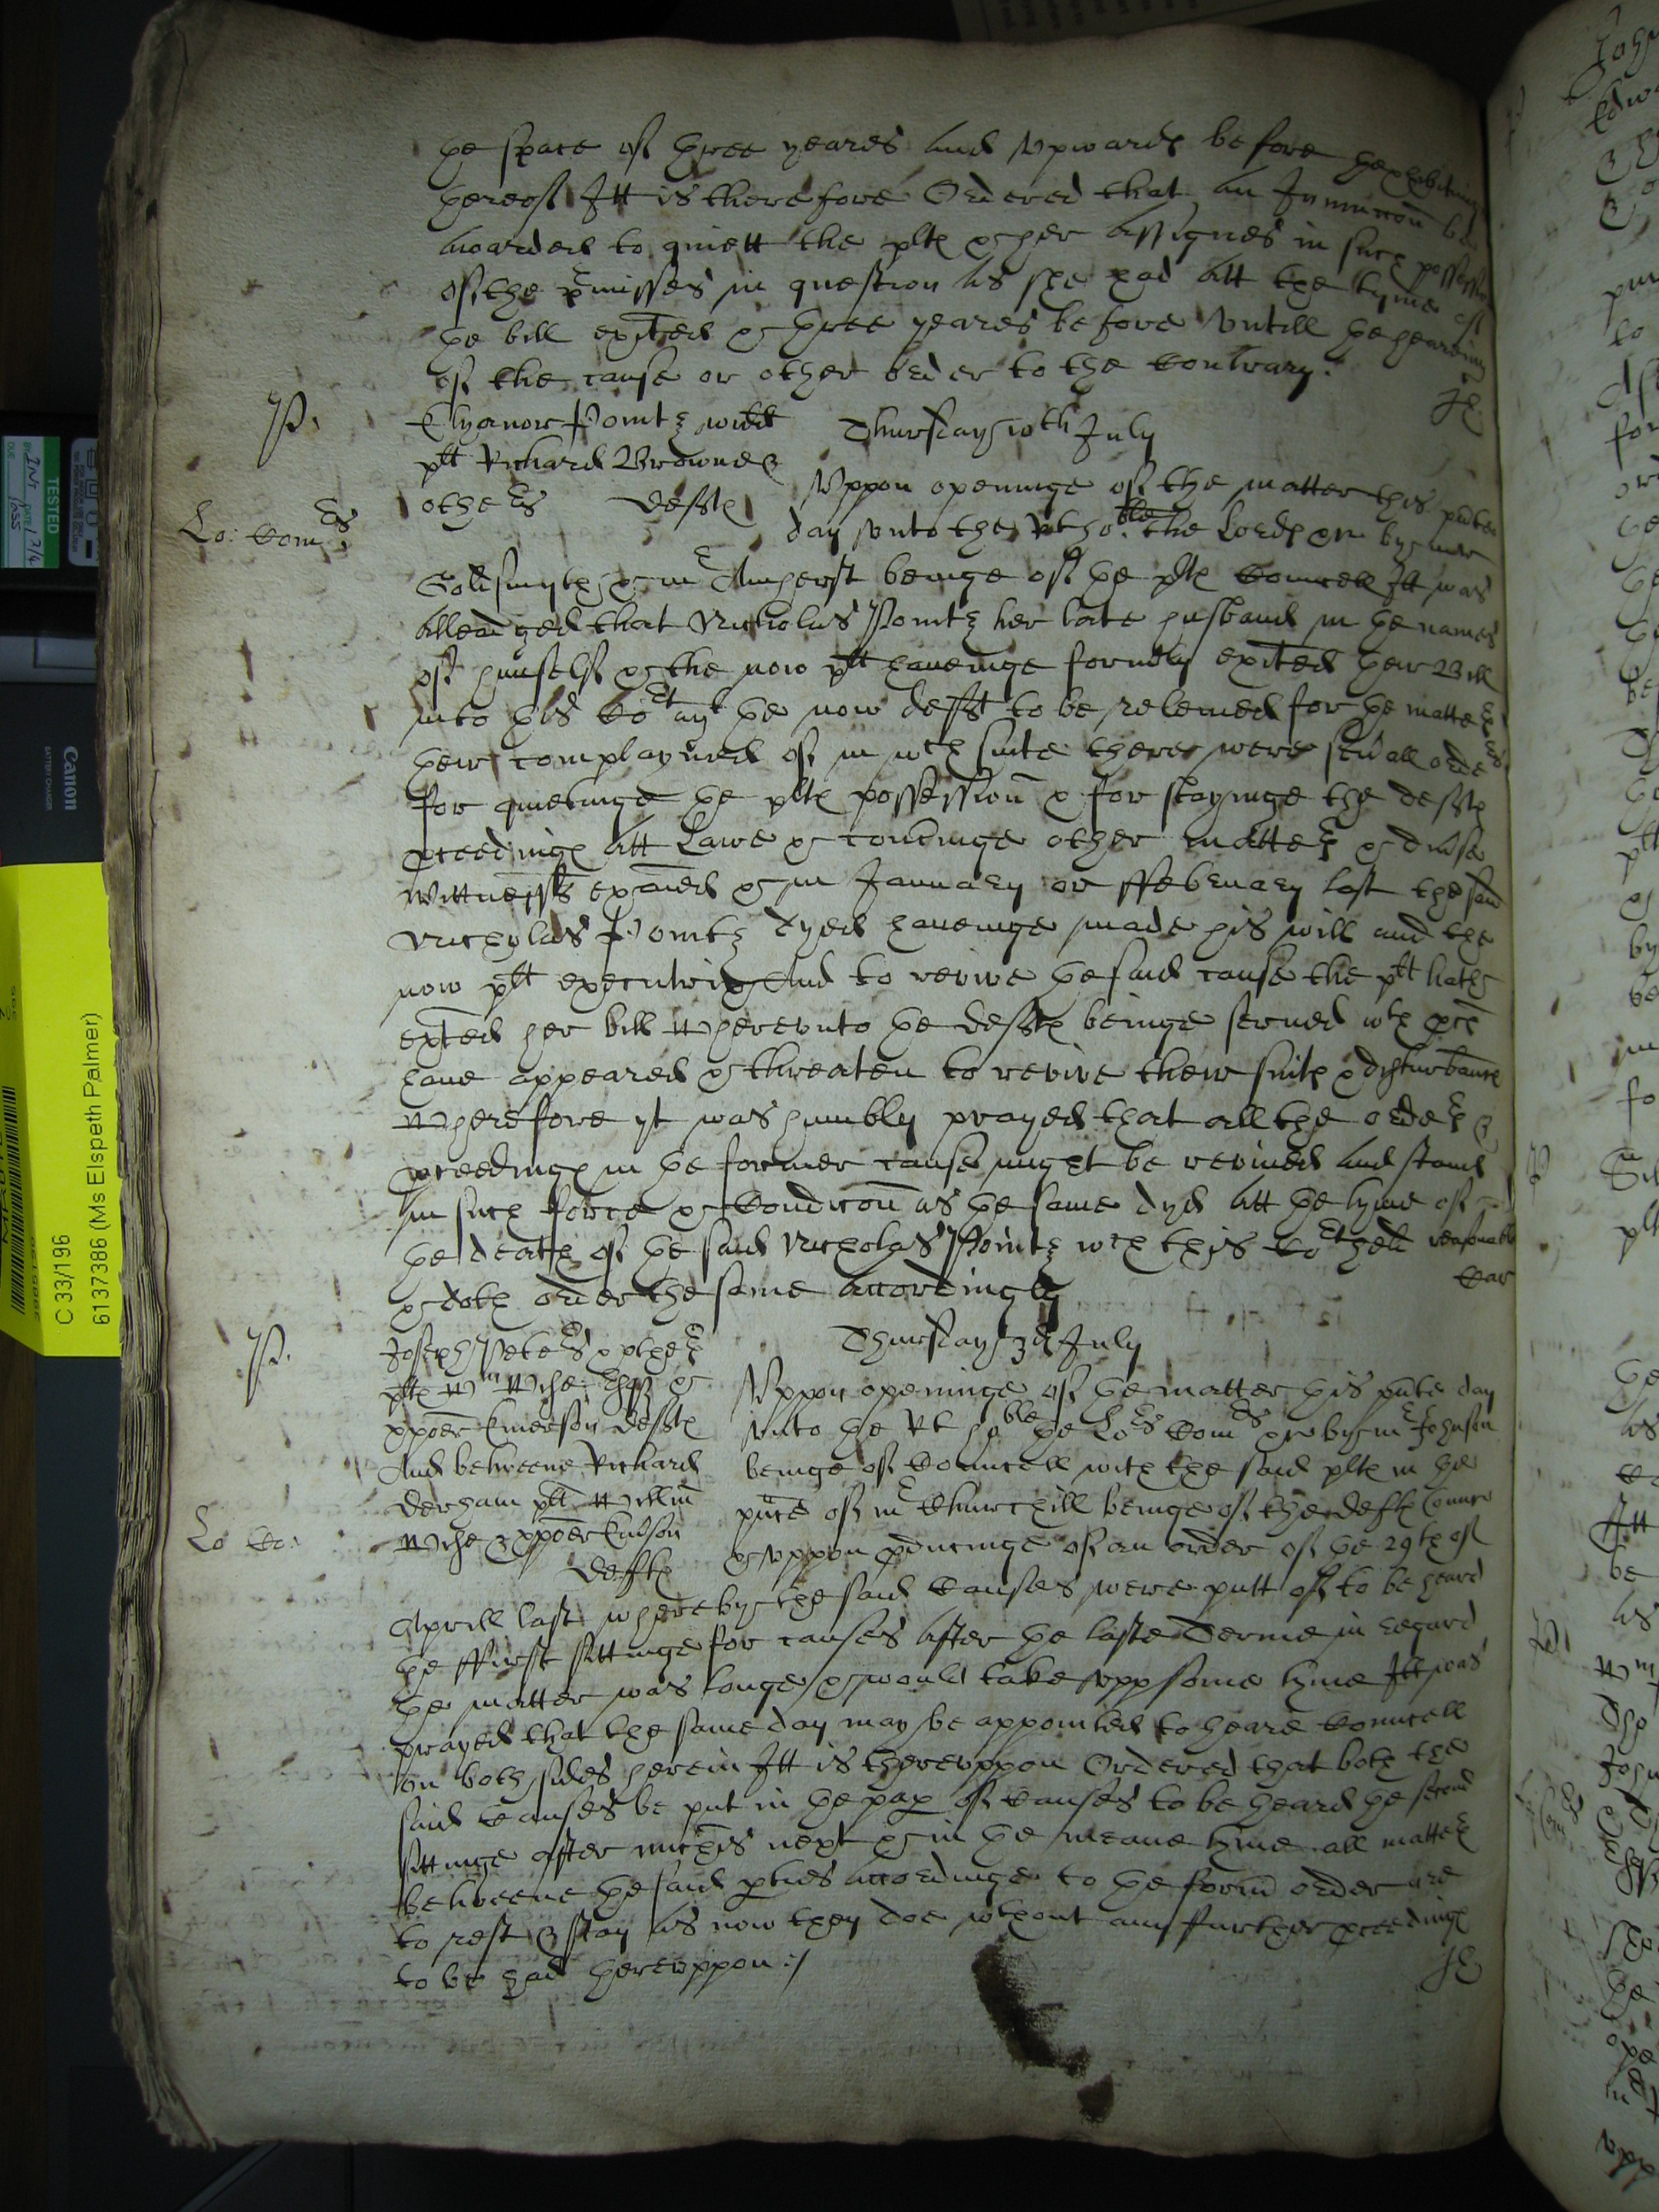 the space of three yeares and upwards before the exhibiting
thereof Itt is therefore Ordered that an Iniunccon be
awarded to quiett the plt & her assignes in such possession
of the pmisses in question as she had att the tyme of
the bill exhited & three yeares before untill the hearing
of the cause or other order to the contrary.
P.
Elyanor Pointz widd
plt Richard Browne &
others defts
Thursday 10th July
Lo: Comrs
Uppon openinge of the matter this pnte
day unto the Rt hoble the Lords by mr
Goldsmyth & mr Amherst beinge of the plts Councell Itt was
alleadged that Nicholas Pointz her late husband in the names
of himself & the now plt haveinge formly exited their Bill
into this Cort agt the now defts to be releived for the matters
therein complayned of in wch suite there were seuall orders
for quietinge the plts possession & for stayinge the defts
pceedings att Lawe & touchinge other matters & diuse
Wittnesses exaied & in January or ffebruary last the said
Nicholas Pointz dyed haveinge made his will and the
now plt executrix And to revive the said cause the plt hath
exited her bill Whereunto the defts beinge serued wth pces
haue appeared & threaten to revive their suits & disturbance
Wherefore yt was humbly prayed that all the orders &
pceedings in the former cause might be revived and stand
in such force & Condicon as the same dyd att the tyme of
the death of the said Nicholas Pointz wch this Cort held reasonable
& doth order the same accordingly
P.
Joseph Peters & others
plts Wm Wche Esqr &
Xpoer Emerson defts
And betweene Richard
Derham plt Willm
Wche & Xpoer Emson
defts
Thursday 3d July
Lo Co:
Uppon openinge of the matter this pnte day
unto the Rt hoble the Lors Comrs by mr Johnson
beinge of Councell with the said plts in the
pnce of mr Churchill beinge of the defts Councell
& uppon pducinge of an order of the 29th of
Aprill last whereby the said Causes were putt of to be heard
the ffirst sittinge for causes after the laste Terme in regard
the matter was longe & would take upp some tyme Itt was
prayed that the same day may be appointed to heare Councell
on both sides herein Itt is thereuppon Ordered that both the
said Causes be put in the pap of Causes to be heard the second
sittinge after michis next & in the meane tyme all matters
betweene the said pties accordinge to the form order are
to rest & stay as now they doe wthout any further pceedings
to be had thereuppon:/
TESTED
Pass
Canon
BATTERY CHARGER
C 33/196
6137386 (Ms Elspeth Palmer)